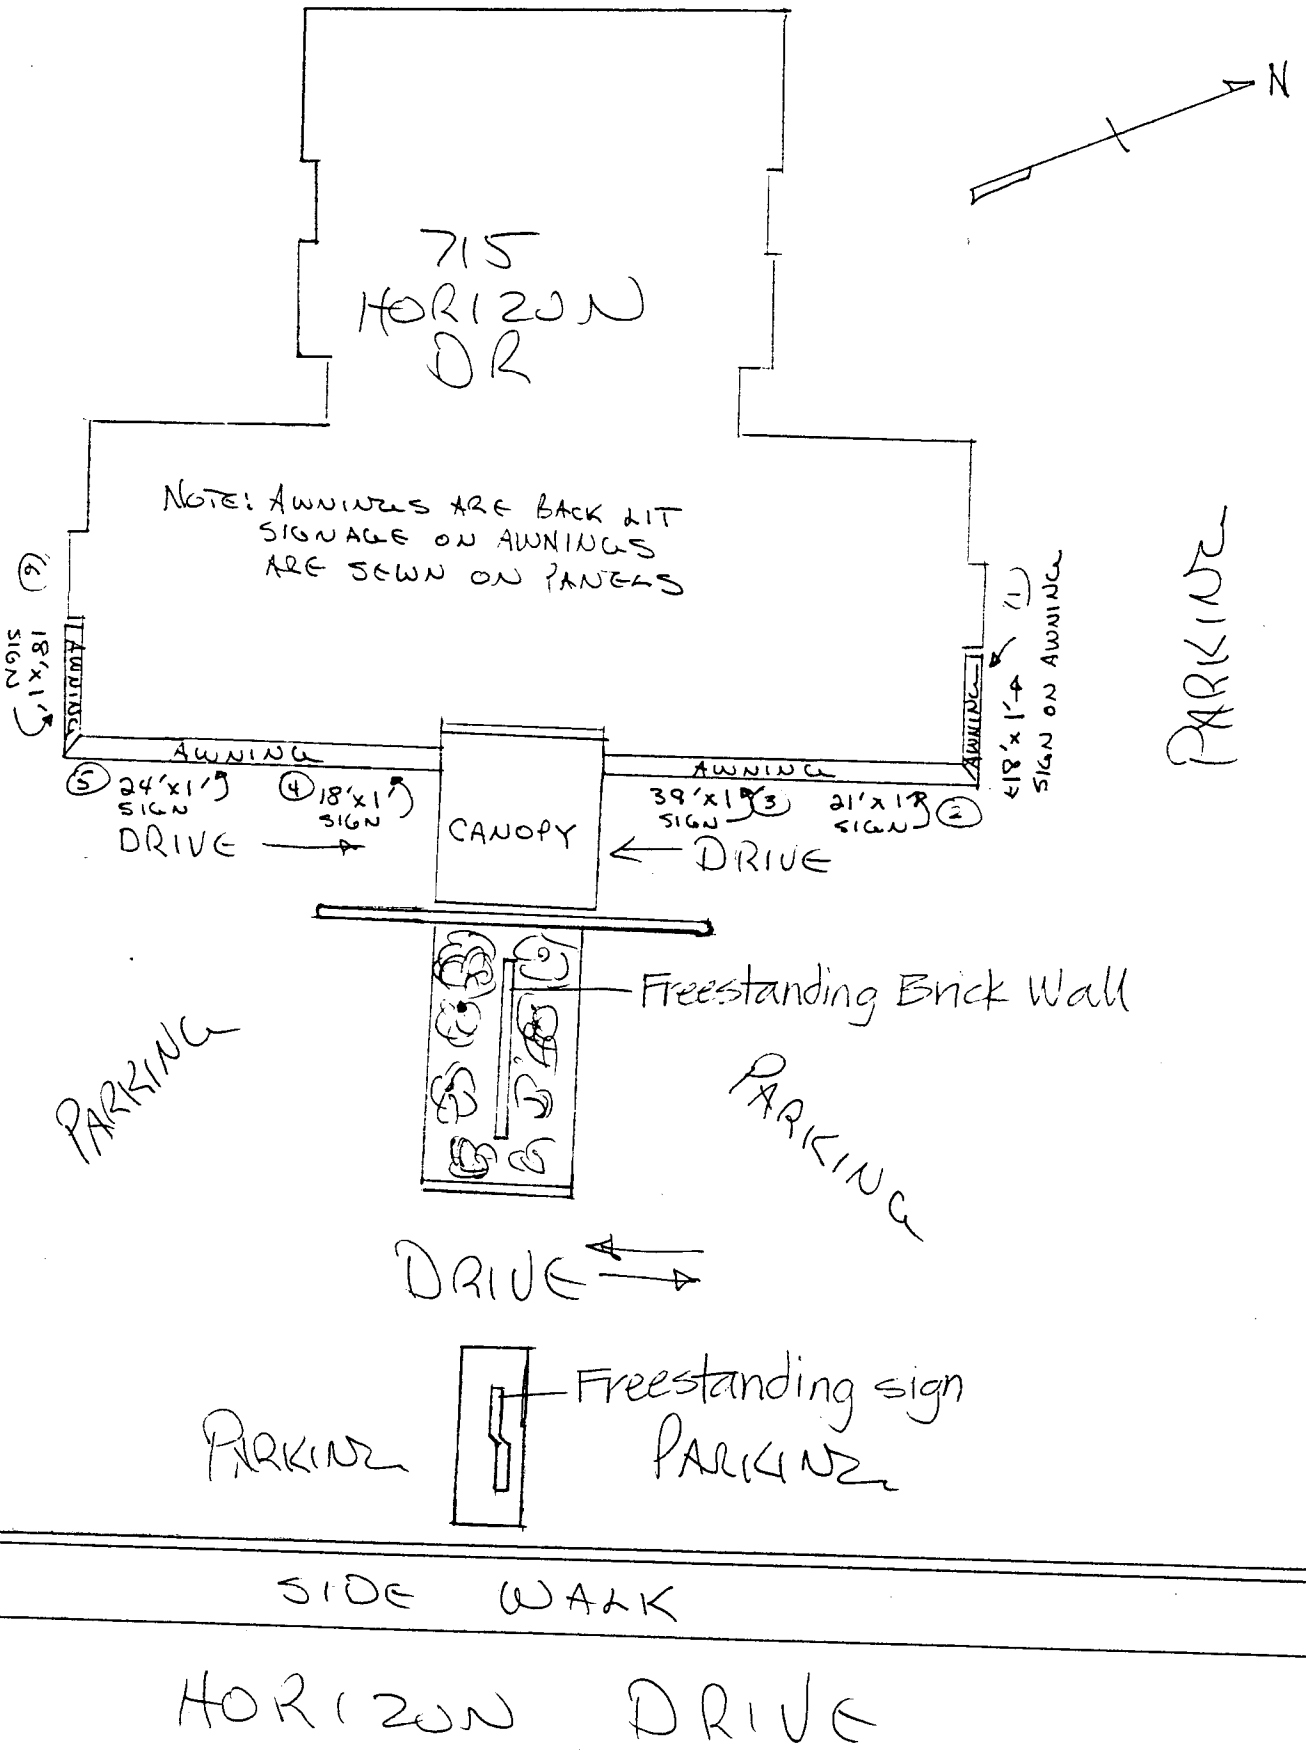 N
715
HORIZON
DR
NOTE: AWNINGS ARE BACK LIT
SIGNAGE ON AWNINGS
ARE SEWN ON PANELS
PARKING
(6)
18'x1'
SIGN
AWNING
(1)
18'x1'
SIGN ON AWNING
AWNING
AWNING
AWNING
(5) 24'x1'
SIGN
(4) 18'x1'
SIGN
39'x1' (3)
SIGN
21'x1'
SIGN (2)
DRIVE
CANOPY
DRIVE
Freestanding Brick Wall
PARKING
PARKING
DRIVE
Freestanding sign
PARKING
PARKING
SIDE WALK
HORIZON DRIVE